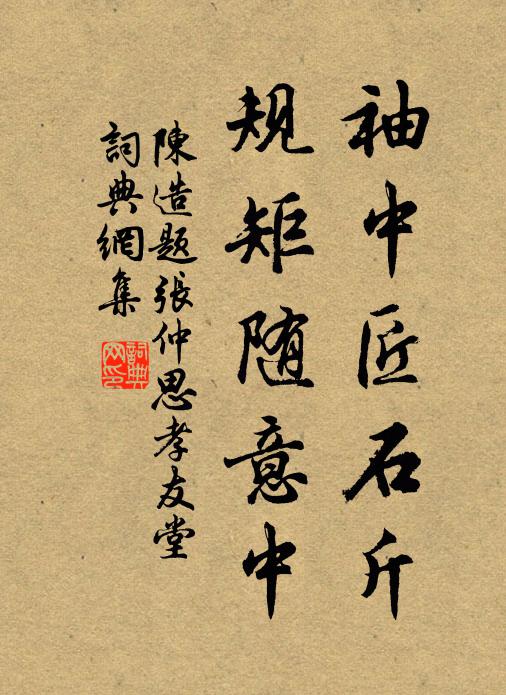 袖中匠石斤
規矩随意中
陳造題張仲思孝友堂
詞典網集
詞典网印